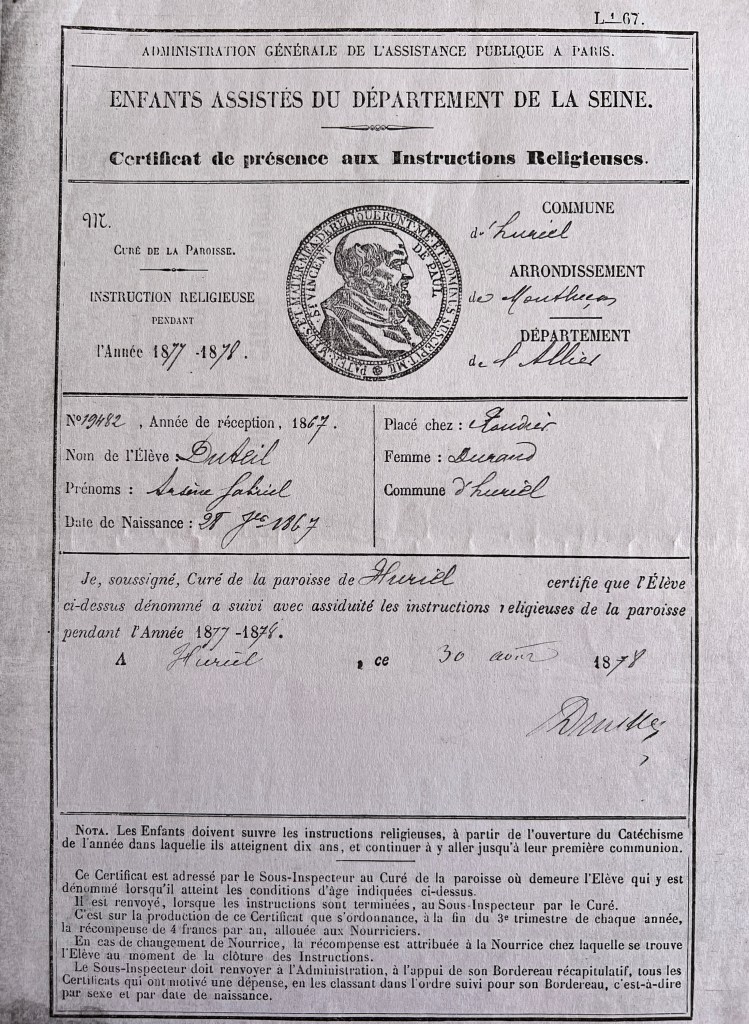 L 1 67.
ADMINISTRATION GÉNÉRALE DE L'ASSISTANCE PUBLIQUE A PARIS.
ENFANTS ASSISTÉS DU DÉPARTEMENT DE LA SEINE.
Certificat de présence aux Instructions Religieuses.
M.
CURÉ DE LA PAROISSE.
INSTRUCTION RELIGIEUSE
PENDANT
l'Année 1877-1878.
PATER MEUS ET MATER MEA DERELIQUERUNT ME ET DOMINUS SUSCEPIT ME
St VINCENT DE PAUL
COMMUNE
d'huriel
ARRONDISSEMENT
de Montluçon
DÉPARTEMENT
de l'Allier
No 19482, Année de réception, 1867.
Nom de l'Élève : Duteil
Prénoms : Arsène Gabriel
Date de Naissance : 28 1867
Placé chez :
Femme : Durand
Commune d'huriel
Je, soussigné, Curé de la paroisse de Huriel certifie que l'Élève
ci-dessus dénommé a suivi avec assiduité les instructions religieuses de la paroisse
pendant l'Année 1877-1878.
A Huriel, ce 30 avril 1878
NOTA. Les Enfants doivent suivre les instructions religieuses, à partir de l'ouverture du Catéchisme
de l'année dans laquelle ils atteignent dix ans, et continuer à y aller jusqu'à leur première communion.
Ce Certificat est adressé par le Sous-Inspecteur au Curé de la paroisse où demeure l'Elève qui y est
dénommé lorsqu'il atteint les conditions d'âge indiquées ci-dessus.
Il est renvoyé, lorsque les instructions sont terminées, au Sous-Inspecteur par le Curé.
C'est sur la production de ce Certificat que s'ordonnance, à la fin du 3e trimestre de chaque année,
la récompense de 4 francs par an, allouée aux Nourriciers.
En cas de changement de Nourrice, la récompense est attribuée à la Nourrice chez laquelle se trouve
l'Elève au moment de la clôture des Instructions.
Le Sous-Inspecteur doit renvoyer à l'Administration, à l'appui de son Bordereau récapitulatif, tous les
Certificats qui ont motivé une dépense, en les classant dans l'ordre suivi pour son Bordereau, c'est-à-dire
par sexe et par date de naissance.